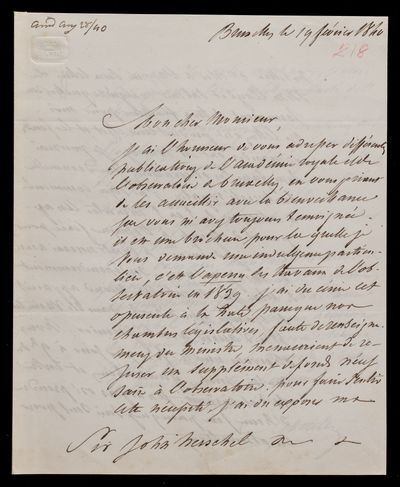 Ansd Aug 25/40
Bruxelles le 19 février 1840
218
Mon cher Monsieur,
j'ai l'honneur de vous adresser différentes
publications de l'académie royale et de
l'observatoire de bruxelles, en vous priant
de les accueillir avec la bienveillance
que vous m'avez toujours témoignée.
il est une brochure pour la quelle je
vous demande une indulgence particu-
lière, c'est l'aperçu des travaux de l'ob-
servatoire en 1839. j'ai du écrire cet
opuscule à la hate parceque nos
chambres législatives, faute de renseigne-
mens du ministre, menacaient de re-
fuser un supplément de fonds néces-
saire à l'observatoire. pour faire sentir
cette nécessité j'ai du exposer
Sir John Herschel